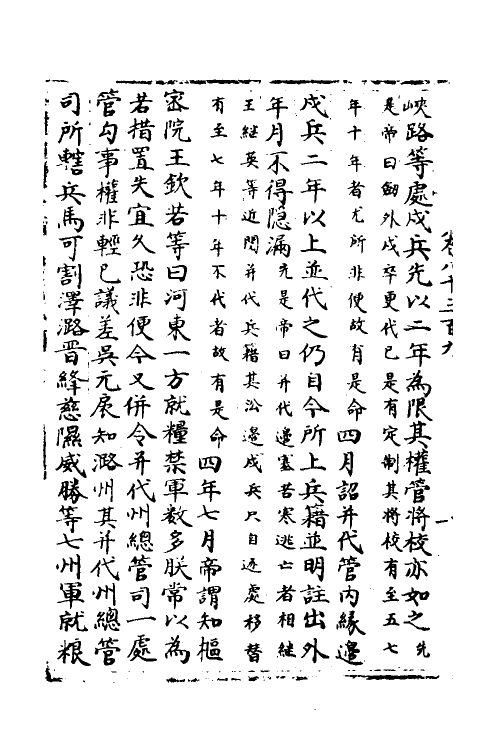 峽路等處戍兵先以二年為限其權管將校亦如之先
是帝曰劒外戍卒更代已是有定制其將校有至五七
年十年者尤所非便故有是命四月詔并代管內緣邊
戍兵二年以上並代之仍自今所上兵籍並明註出外
年月不得隱漏先是帝曰并代邊塞苦寒逃亡者相繼
王繼英等近閱并代兵籍其沿邊戍兵只自逐處移替
有至七年十年不代者故有是命四年七月帝謂知樞
密院王欽若等曰河東一方就糧禁軍数多朕常以為
若措置失宜久恐非便今又併令并代州總管司一處
管勾事權非輕已議差吳元扆知潞州其并代州總管
司所轄兵馬可割澤潞晋絳慈隰威勝等七州軍就粮